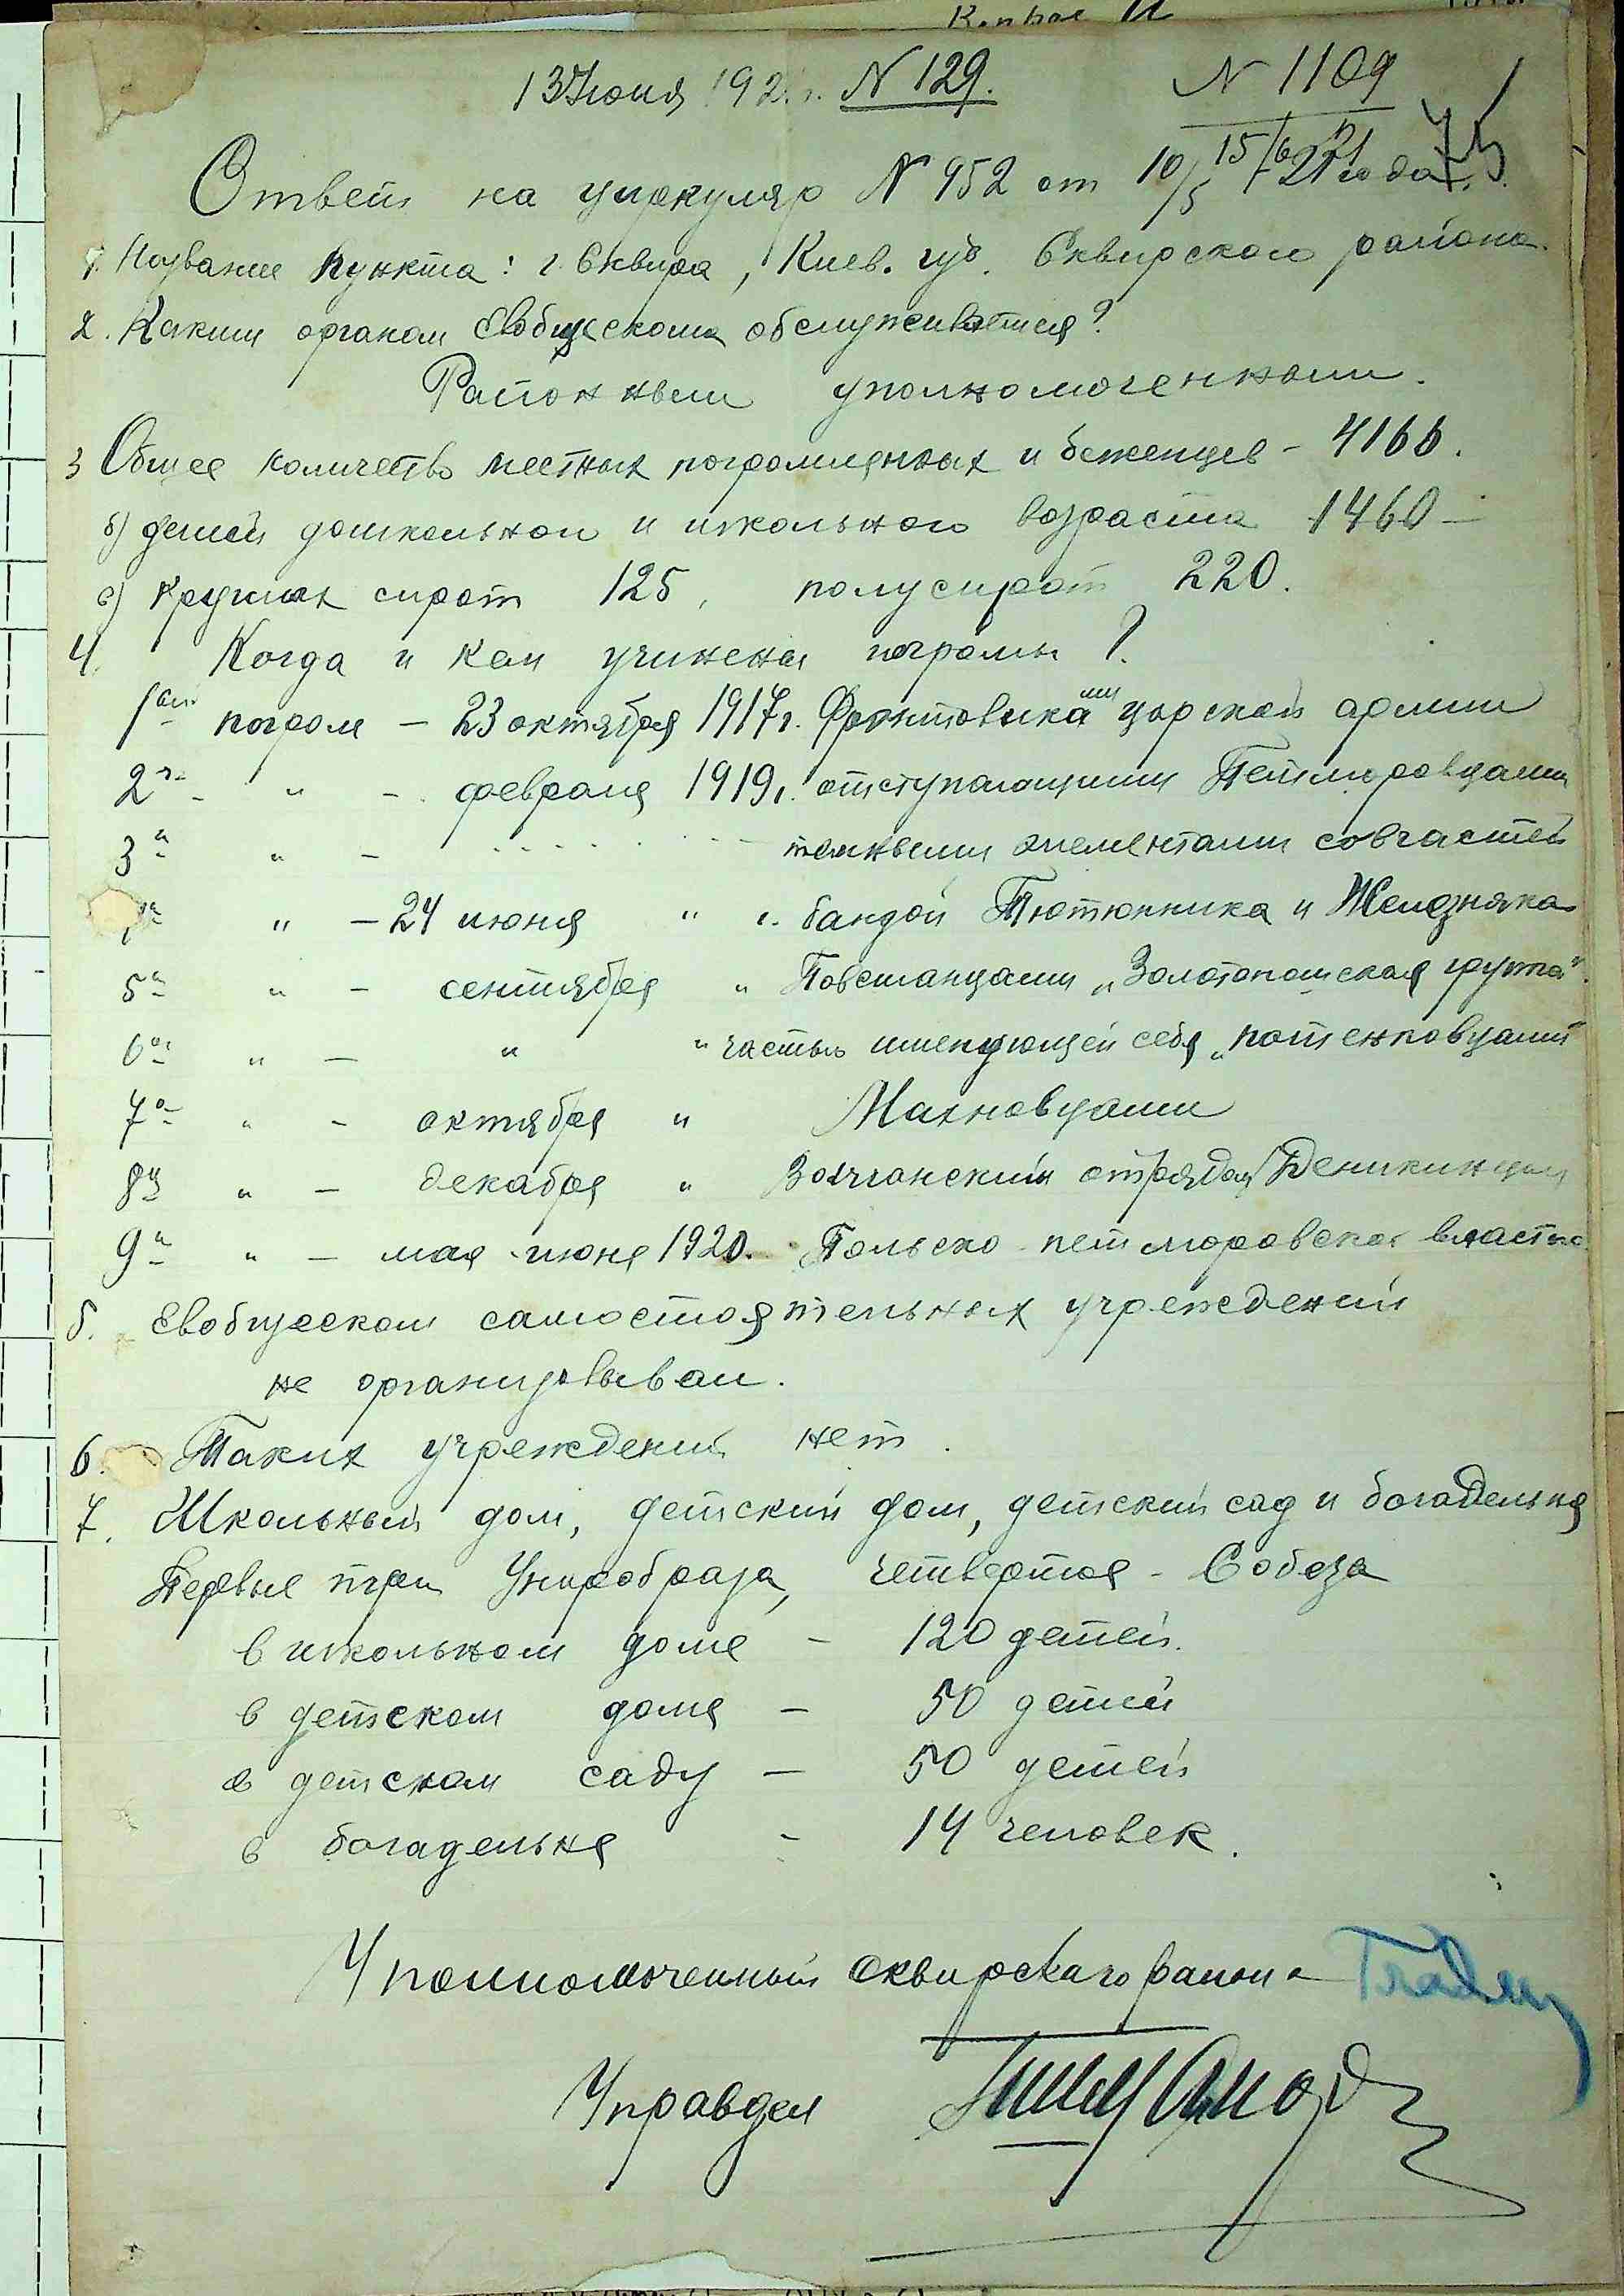 13 Июня 192 г. N 129.
N 1109
15/6 21
75
Ответ на циркуляр N 952 от 10/5 21 года
1. Название пункта: г. Сквира, Киев. губ. Сквирского района.
2. Каким органом Евобщескома обслуживается?
Районным уполномоченным.
3 Общее количество местных погромленных и беженцев - 4166.
б) детей дошкольного и школьного возраста 1460 -
в) круглых сирот 125, полусирот 220.
4. Когда и кем учинены погромы?
1ый погром - 23 октября 1917 г. Фронтовиками царской армии
2й " - февраля 1919 г. отступающими Петлюровцами
3й " - темными элементами совчастей
" - 24 июня " г. бандой Тютюнника и Железняка
5й " - сентября " Повстанцами „Золотопошская группа"
6й " - " " частью именующей себя „потенковцами"
7й " - октября " Махновцами
8й " - декабря " Волчанским отрядом Деникинцами
9й " - мая - июня 1920. Польско-петлюровской властью
5. Евобщеском самостоятельных учреждений
не организовывал.
6. Таких учреждений нет.
7. Школьный дом, детский дом, детский сад и богадельня
Первые три Унаробраза, четвертая - Собеза
в школьном доме - 120 детей.
в детском доме - 50 детей
в детском саду - 50 детей
в богадельне - 14 человек.
Уполномоченный Сквирскаго района
Управдел